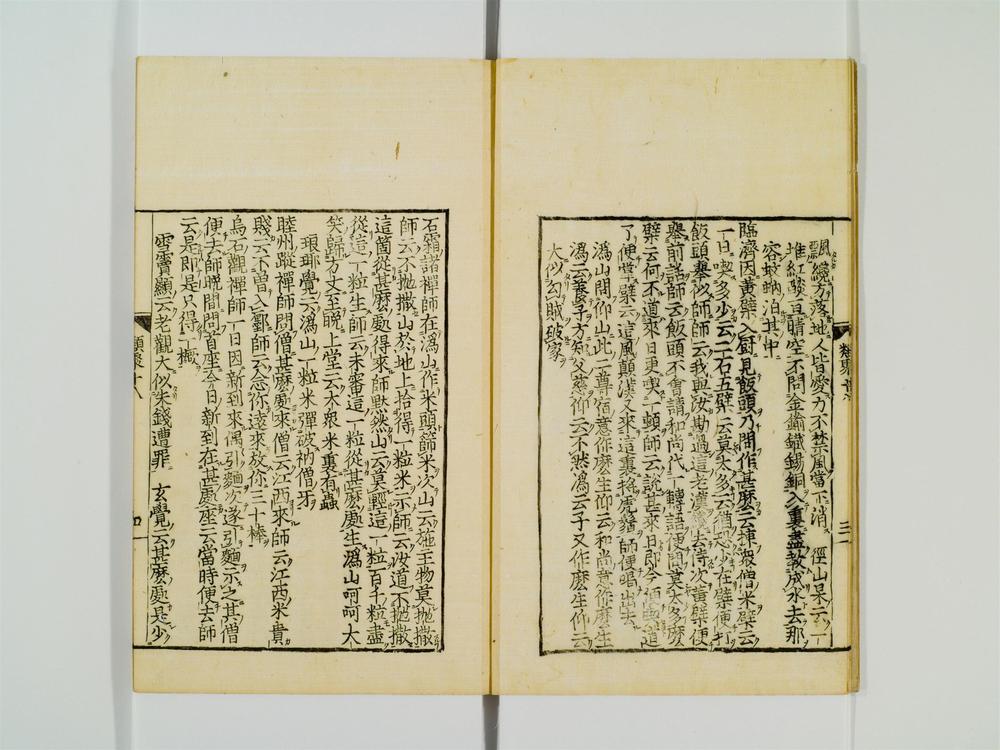 飄纔方落地人皆愛力不禁風當下消　徑山杲云一
堆紅燄亘晴空不問金鍮鐵錫銅入裏盡教成水去那
容蚊蚋泊其中
臨濟因黃檗入厨見飯頭乃問作甚麼云揀衆僧米檗云
一日喫多少云二石五檗云莫太多云猶恐少在檗便打
飯頭舉似師師云我與汝勘過這老漢去待次黃檗便
舉前話師云飯頭不會請和尚代一轉語便問莫太多麼
檗云何不道來日更喫一頓師云說甚來日即今便喫道
了便掌檗云這風顛漢又來這裏捋虎鬚師便喝出去
溈山問仰山此二尊宿意作麼生仰云和尚意作麼生
溈云養子方知父慈仰云不然溈云子又作麼生仰云
大似勾賊破家
類聚
三
石霜諸禪師在溈山作米頭篩米次山云施主物莫抛撒
師云不抛撒山於地上拾得一粒米示師云汝道不抛撒
這箇從甚麼處得來師默然山云莫輕這一粒百千粒盡
從這一粒生師云未審這一粒從甚麼處生溈山呵呵大
笑歸方丈至晩上堂云大衆米裏有蟲
瑯琊覺云溈山一粒米彈破衲僧牙
睦州蹤禪師問僧甚麼處來僧云江西來師云江西米貴
賤云不曾入鄽師云念你遠來放你三十棒
烏石觀禪師一日因新到來偶引麵次遂引麵示之其僧
便去師晩間問首座今日新到在甚處座云當時便去師
云是即是只得一橛
雪竇顯云老觀大似失錢遭罪　玄覺云甚麼處是少
類聚十八
四